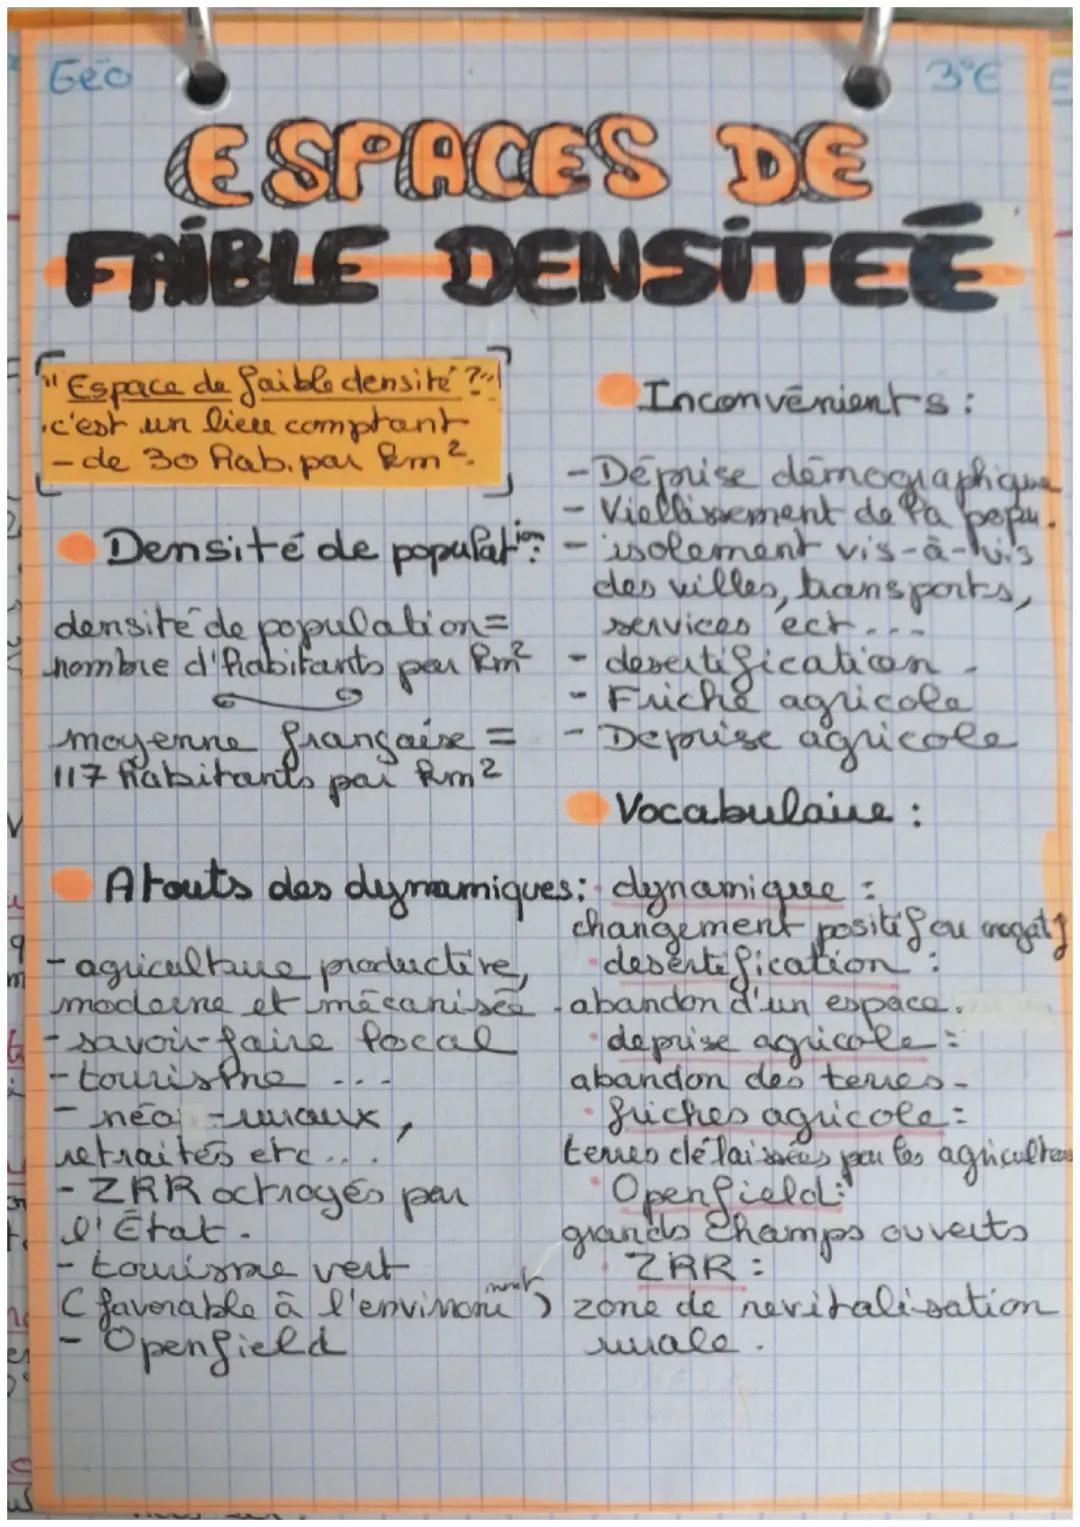 Géo
3°E
ESPACES DE
FAiBLE DENSiTEÉ
"Espace de faible densité ?"
c'est un lieu comptant
- de 30 hab. par km².
Densité de populat ion :
densité de population =
nombre d'habitants par km²
moyenne française =
117 habitants par km²
Atouts des dynamiques :
- agriculture productive,
moderne et mécanisée
- savoir-faire local
- tourisme ...
- néo-ruraux,
retraités etc ...
- ZRR octroyés par
l'État.
- tourisme vert
( favorable à l'environne ment )
- Openfield
Inconvénients :
- Déprise démographique
- Viellissement de la popu.
- isolement vis-à-vis
des villes, transports,
services ect ...
- desertification.
- Friche agricole
- Deprise agricole
Vocabulaire :
dynamique :
changement positif ou négatif
desertification :
abandon d'un espace.
deprise agricole :
abandon des terres.
friches agricole :
terres délaissées par les agriculteurs
Openfield :
grands champs ouverts
ZRR :
zone de revitalisation
rurale.